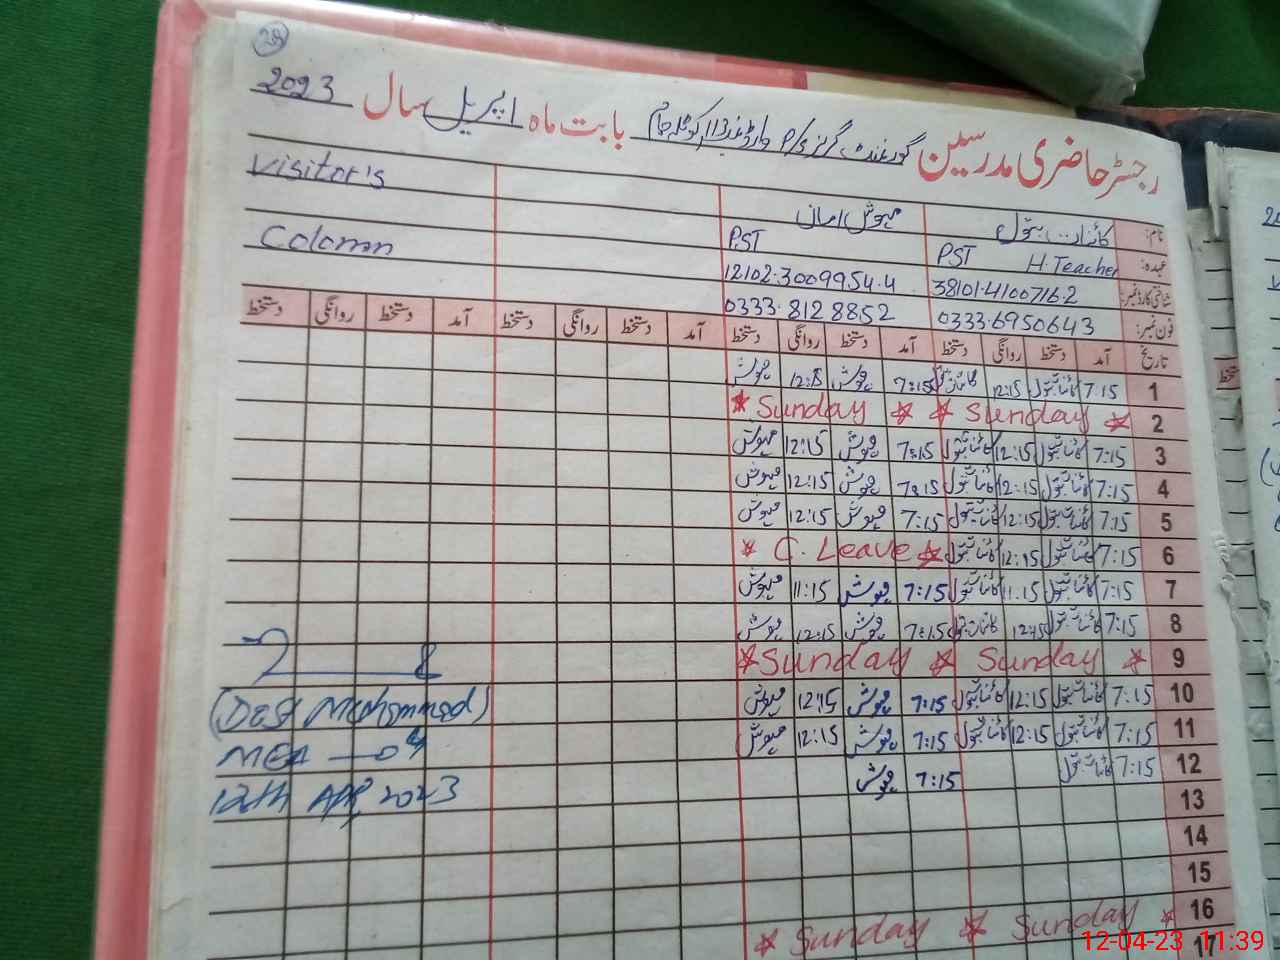 28
رجسٹر حاضری مدرسین گورنمنٹ گرلز P/S وارڈ نمبر 113 کوٹلہ جام بابت ماہ اپریل سال 2023
نام: کائنات بتول مہوش امان Visitor's
عہدہ: PST H.Teacher PST Colomn
شناختی کارڈ نمبر: 38101-4100716-2 12102-3009954-4
فون نمبر: 0333-6950643 0333-8128852
تاریخ آمد دستخط روانگی دستخط آمد دستخط روانگی دستخط آمد دستخط روانگی دستخط آمد دستخط روانگی دستخط
1 7:15 کائنات بتول 12:15 کائنات بتول 7:15 مہوش 12:15 مہوش
2 * Sunday * * Sunday *
3 7:15 کائنات بتول 12:15 کائنات بتول 7:15 مہوش 12:15 مہوش
4 7:15 کائنات بتول 12:15 کائنات بتول 7:15 مہوش 12:15 مہوش
5 7:15 کائنات بتول 12:15 کائنات بتول 7:15 مہوش 12:15 مہوش
6 7:15 کائنات بتول 12:15 کائنات بتول * C. Leave *
7 7:15 کائنات بتول 11:15 کائنات بتول 7:15 مہوش 11:15 مہوش
8 7:15 کائنات بتول 12:15 کائنات بتول 7:15 مہوش 12:15 مہوش
9 * Sunday * Sunday *
10 7:15 کائنات بتول 12:15 کائنات بتول 7:15 مہوش 12:15 مہوش
11 7:15 کائنات بتول 12:15 کائنات بتول 7:15 مہوش 12:15 مہوش
12 7:15 کائنات بتول 7:15 مہوش
13
14
15
16 * Sunday * Sunday *
17
MEA — 04
12th APR, 2023
12-04-23 11:39